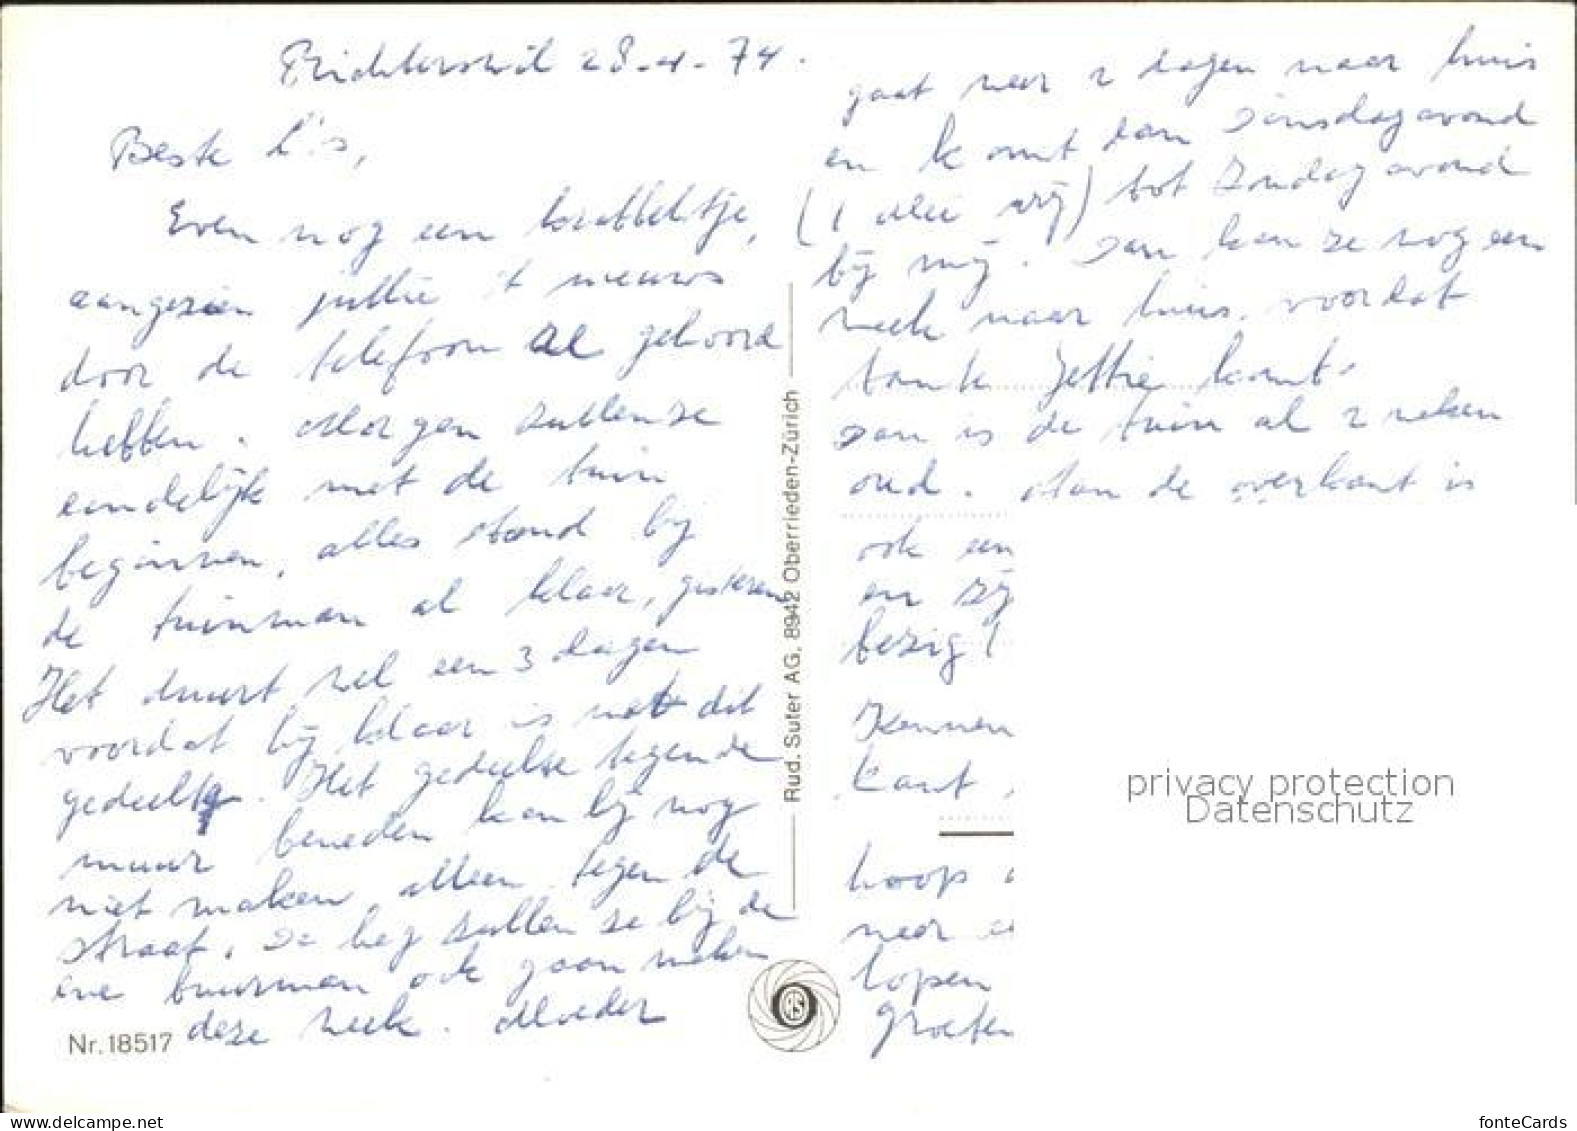 Richterswil 28-4-74.
Beste L's,
Even nog een krabbeltje,
aangezien jullie 't nieuws
door de telefoon al gehoord
hebben. Morgen zullen ze
eindelijk met de tuin
beginnen, alles stond bij
de tuinman al klaar, gisteren
Het duurt wel een 3 dagen
voordat hij klaar is met dit
gedeelte. Het gedeelte tegen de
muur beneden kan hij nog
niet maken, alleen tegen de
straat. De heg zullen ze bij de
ene buurman ook gaan maken
deze week. Moeder
gaat weer 2 dagen naar huis
en komt dan dinsdagavond
(1 Mei vrij) tot zondagavond
bij mij. Dan kan ze nog een
week naar huis, voordat
tante Jettie komt.
Dan is de tuin al 2 weken
oud. Aan de overkant is
ook een
en zij
bezig!
Kennen
kant,
hoop
weer
lopen
Groeten
Rud. Suter AG, 8942 Oberrieden-Zürich
RS
Nr. 18517
privacy protection
Datenschutz
www.delcampe.net
fonteCards